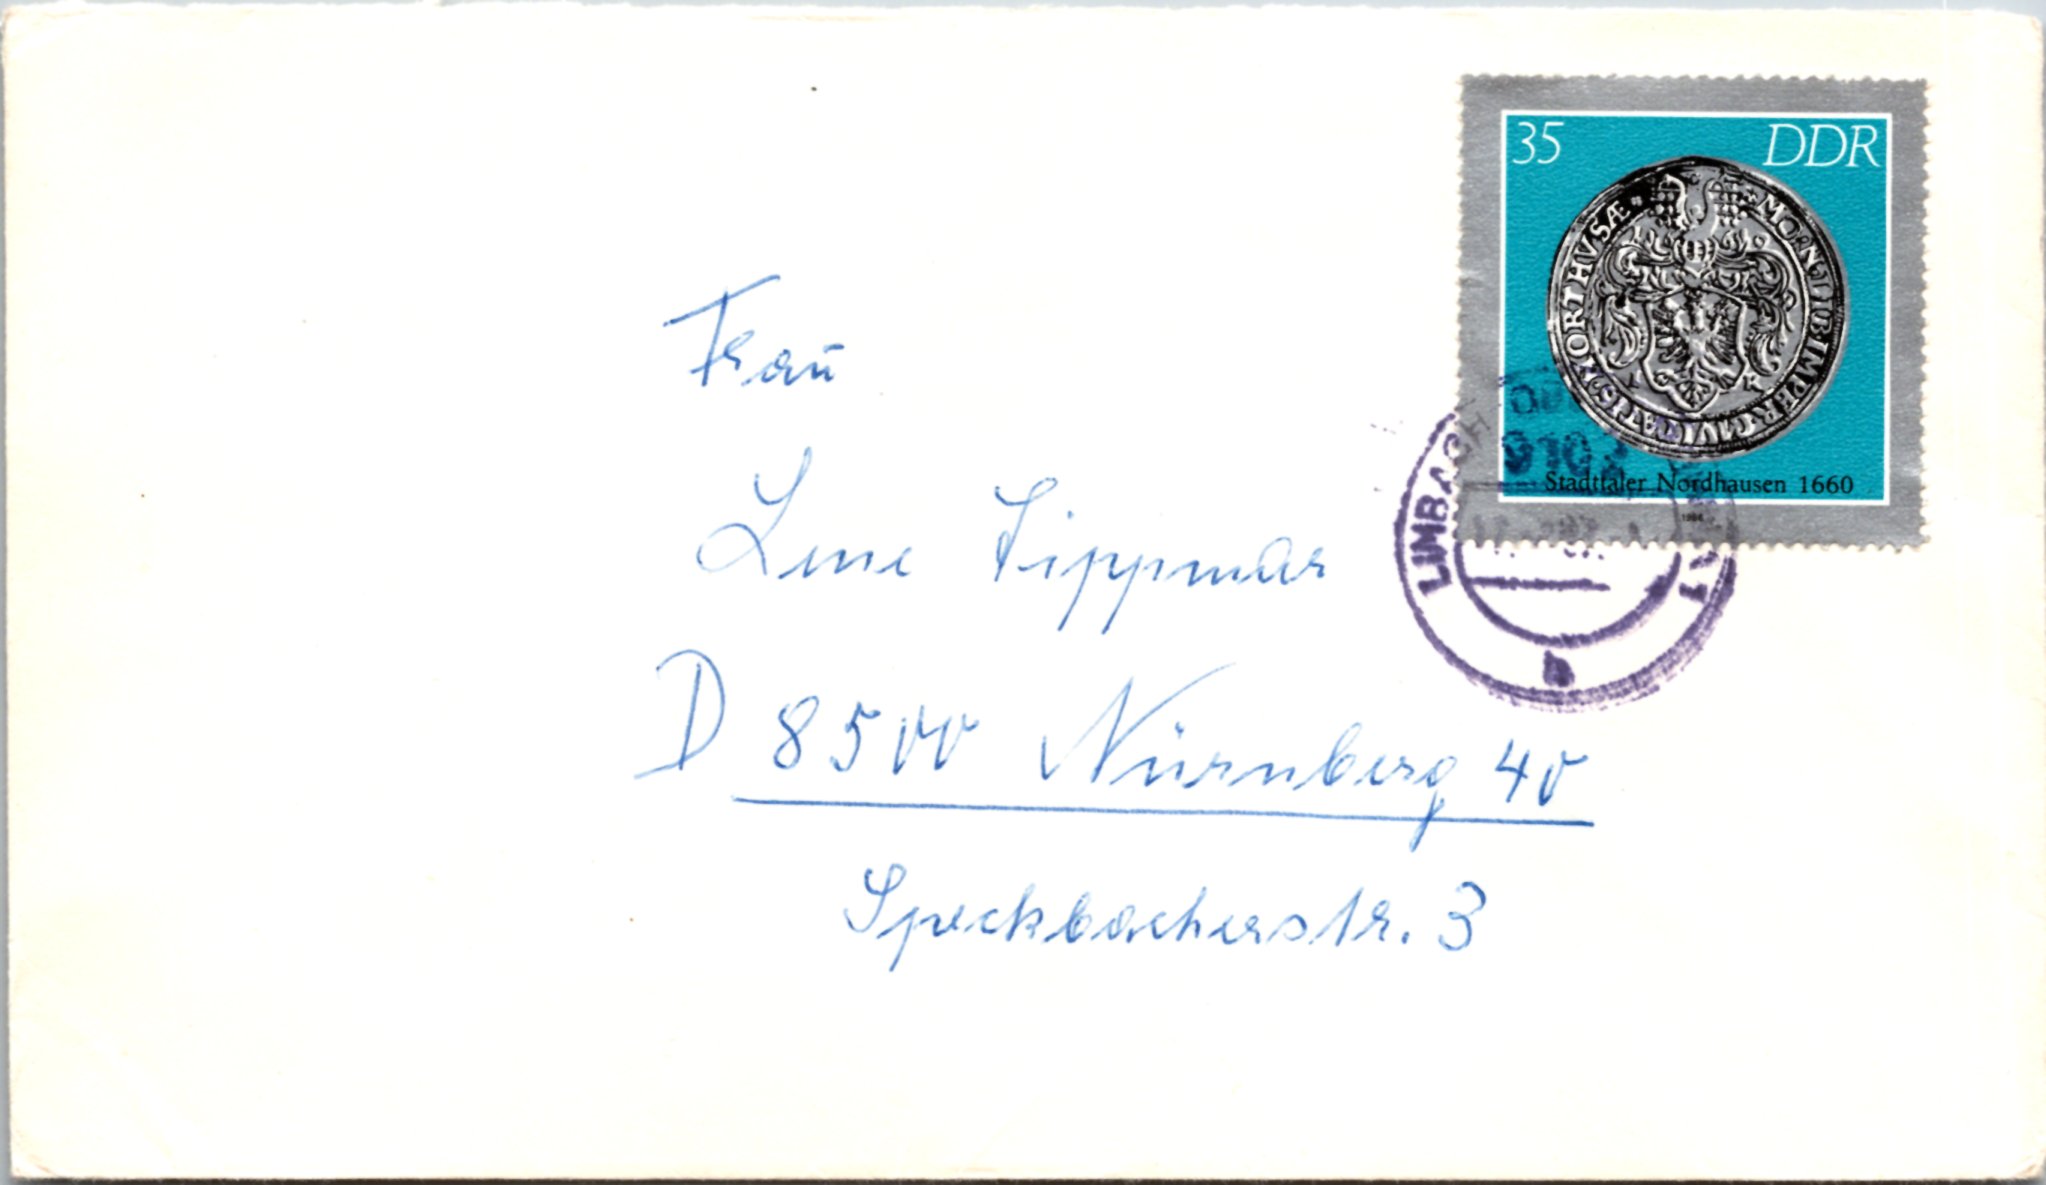 35 DDR
MO·N·LIB·IMPER·CIVITATIS·NORTHVSÆ
Stadttaler Nordhausen 1660
1986
LIMBACH
9102
b
Frau
Lene Lippmar
D 8500 Nürnberg 40
Speckbacherstr. 3